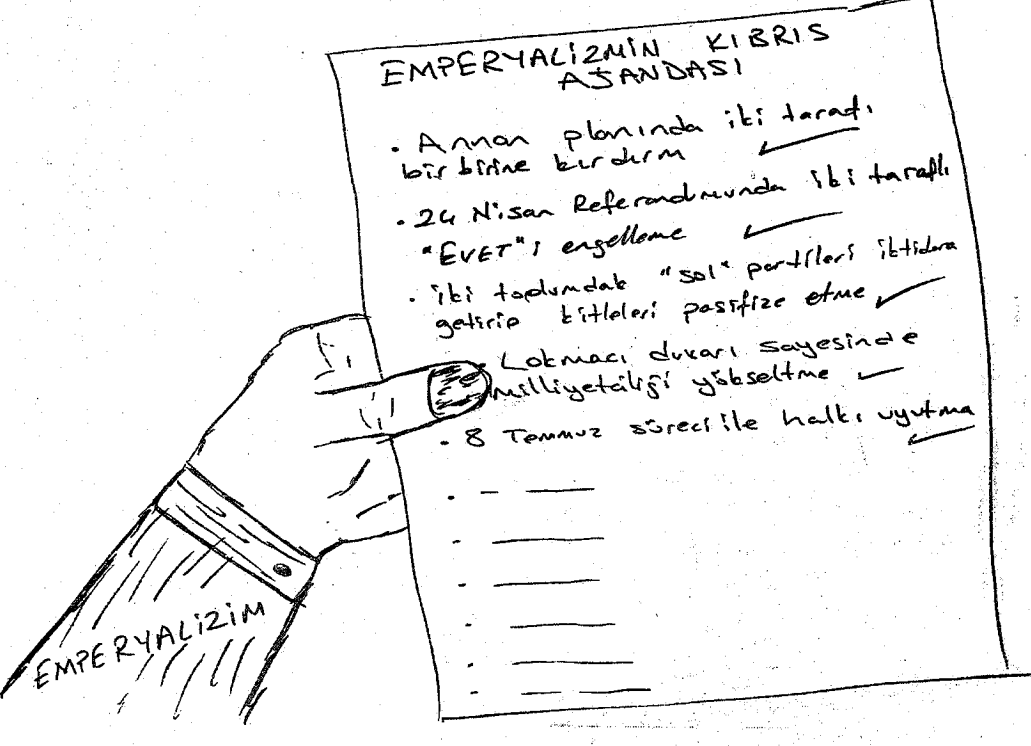 EMPERYALİZMİN KIBRIS
AJANDASI
• Annan planında iki tarafı
birbirine kırdırm
• 24 Nisan Referandumunda iki taraflı
"EVET"i engelleme
• iki toplumdak "sol" partileri iktidara
getirip kitleleri pasifize etme
• Lokmacı duvarı sayesinde
milliyetciliği yükseltme
• 8 Temmuz süreci ile halkı uyutma
EMPERYALİZİM